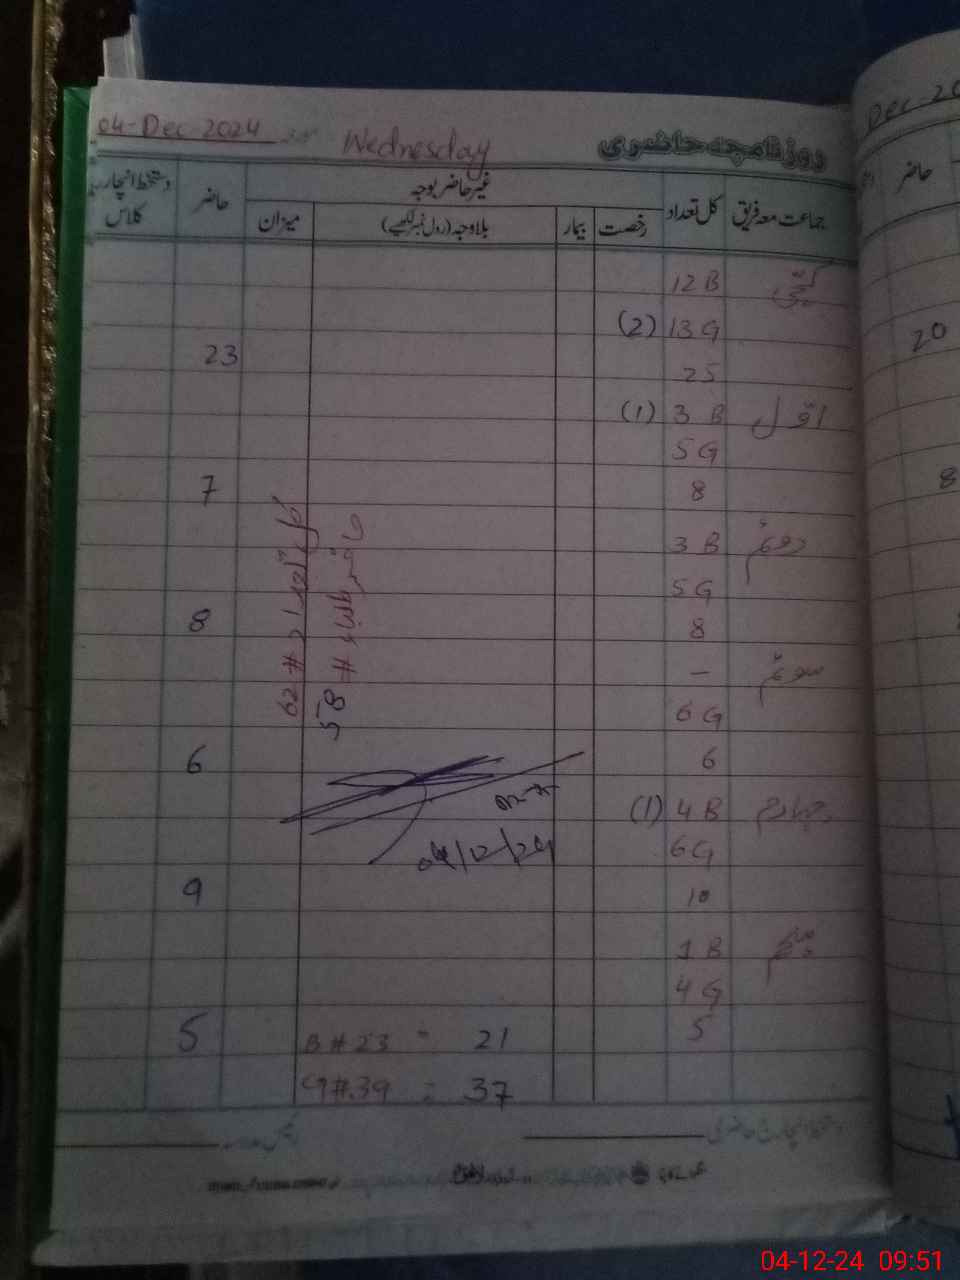 04-Dec-2024
Wednesday
روزنامچہ حاضری
جماعت معہ فریق
کل تعداد
غیر حاضر بوجہ
رخصت
بیمار
بلاوجہ (رول نمبر لکھیے)
میزان
حاضر
دستخط انچارج کلاس
کچی
12 B
(2) 13 G
25
23
اوّل
(1) 3 B
5 G
8
7
دوئم
3 B
5 G
8
8
سوئم
–
6 G
6
6
چہارم
(1) 4 B
6 G
10
9
پنجم
1 B
4 G
5
5
کل تعداد # 62
حاضر # 58
04/12/24
B # 23 = 21
G #.39 = 37
دستخط انچارج حاضری
Dec-20
حاضر
20
8
04-12-24 09:51